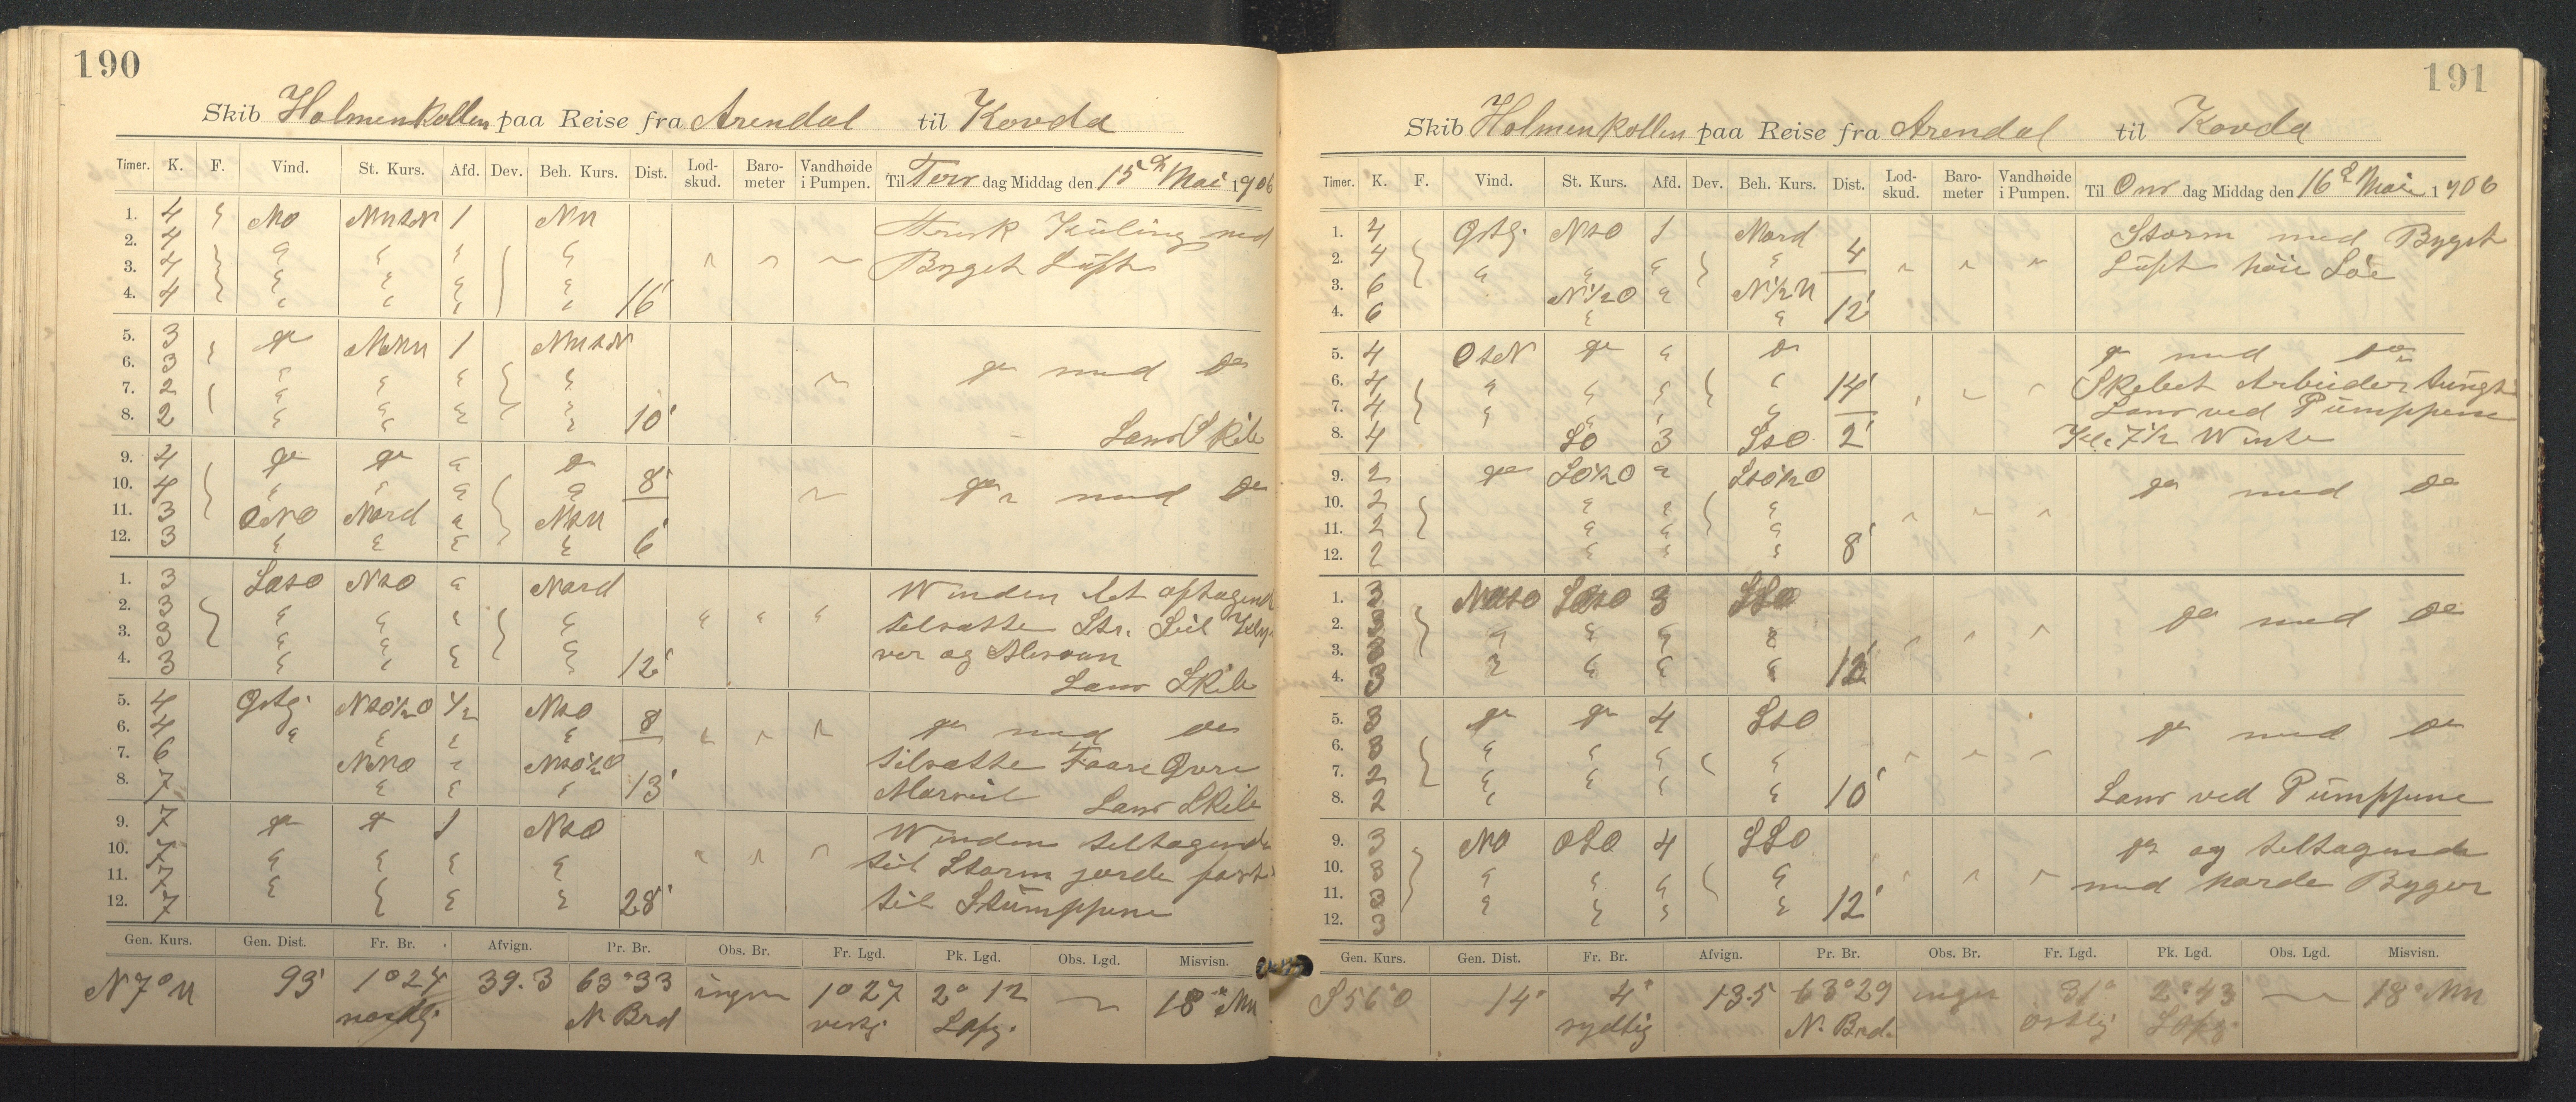 190
Skib Holmenkollen paa Reise fra Arendal til Kovda
Timer. K. F. Vind. St. Kurs. Afd. Dev. Beh. Kurs. Dist. Lod-skud. Baro-meter Vandhøide i Pumpen. Til Tors dag Middag den 15 d Mai 1906
1. 4 NO NNtN 1 NN Frisk Kuling med
2. 4 " " " " Byget Luft
3. 4 " " " "
4. 4 " " " " 16'
5. 3 do NNN 1 NNtN
6. 3 " " " " do med do
7. 2 " " " "
8. 2 " " " " 10' Lans Skib
9. 4 do do " do 8'
10. 4 " " " " do med do
11. 3 ONO Nord " NtN
12. 3 " " " " 6'
1. 3 NtO " Nord Winden let aftagende
2. 3 " " " " tilsatte Str. Seil Kly
3. 3 " " " " ver og Mesan
4. 3 " " " " 12' Lans Skib
5. 4 Østg. NtO½O ½ NtO 8
6. 4 " " " " do med do
7. 6 NNO " NtO½O tilsatte Faare Øvre
8. 7 " " " 13' Marseil Lans Skib
9. 7 do do 1 NtO Winden tiltagende
10. 7 " " " " til Storm jorde fast
11. 7 " " " "
12. 7 " " " " 28' til Stumppene
Gen. Kurs. Gen. Dist. Fr. Br. Afvign. Pr. Br. Obs. Br. Fr. Lgd. Pk. Lgd. Obs. Lgd. Misvisn.
N 7° N 93' 1° 24 39.3 63° 33 ingen 1° 27 2° 12 18° NN
nordlg. N. Brd vestg. Løpg.
191
Skib Holmenkollen paa Reise fra Arendal til Kovda
Timer. K. F. Vind. St. Kurs. Afd. Dev. Beh. Kurs. Dist. Lod-skud. Baro-meter Vandhøide i Pumpen. Til Ons dag Middag den 16 d Mai 1906
1. 4 Østg. NtO 1 Nord Storm med Byget
2. 4 " " " " 4 Luft høie Søe
3. 6 N½O " N½N
4. 6 " " 12'
5. 4 OtN do " do do med do
6. 4 " " " " 14' Skibet Arbeider tungt
7. 4 " " " " Lans ved Pumppene
8. 4 SO 3 StO 2' Kl. 7½ Winte
9. 2 do SO½O " StO½O
10. 2 " " " do med do
11. 2 " " "
12. 2 " " " 8'
1. 3 3 SSO
2. 3 " " " " do med do
3. 3 " " " "
4. 3 " " " " 12'
5. 3 do do 4 StO
6. 3 " " " " do med do
7. 2 " " " "
8. 2 " " " " 10' Lans ved Pumppene
9. 3 NO OSO 4 SSO do og tiltagende
10. 3 " " " "
11. 3 " " " " med haarde Byger
12. 3 12'
Gen. Kurs. Gen. Dist. Fr. Br. Afvign. Pr. Br. Obs. Br. Fr. Lgd. Pk. Lgd. Obs. Lgd. Misvisn.
S 56° O 14' 4' 13.5 63° 29 ingen 31' 2° 43 18° NN
sydlig N. Brd. østlig Løpg.